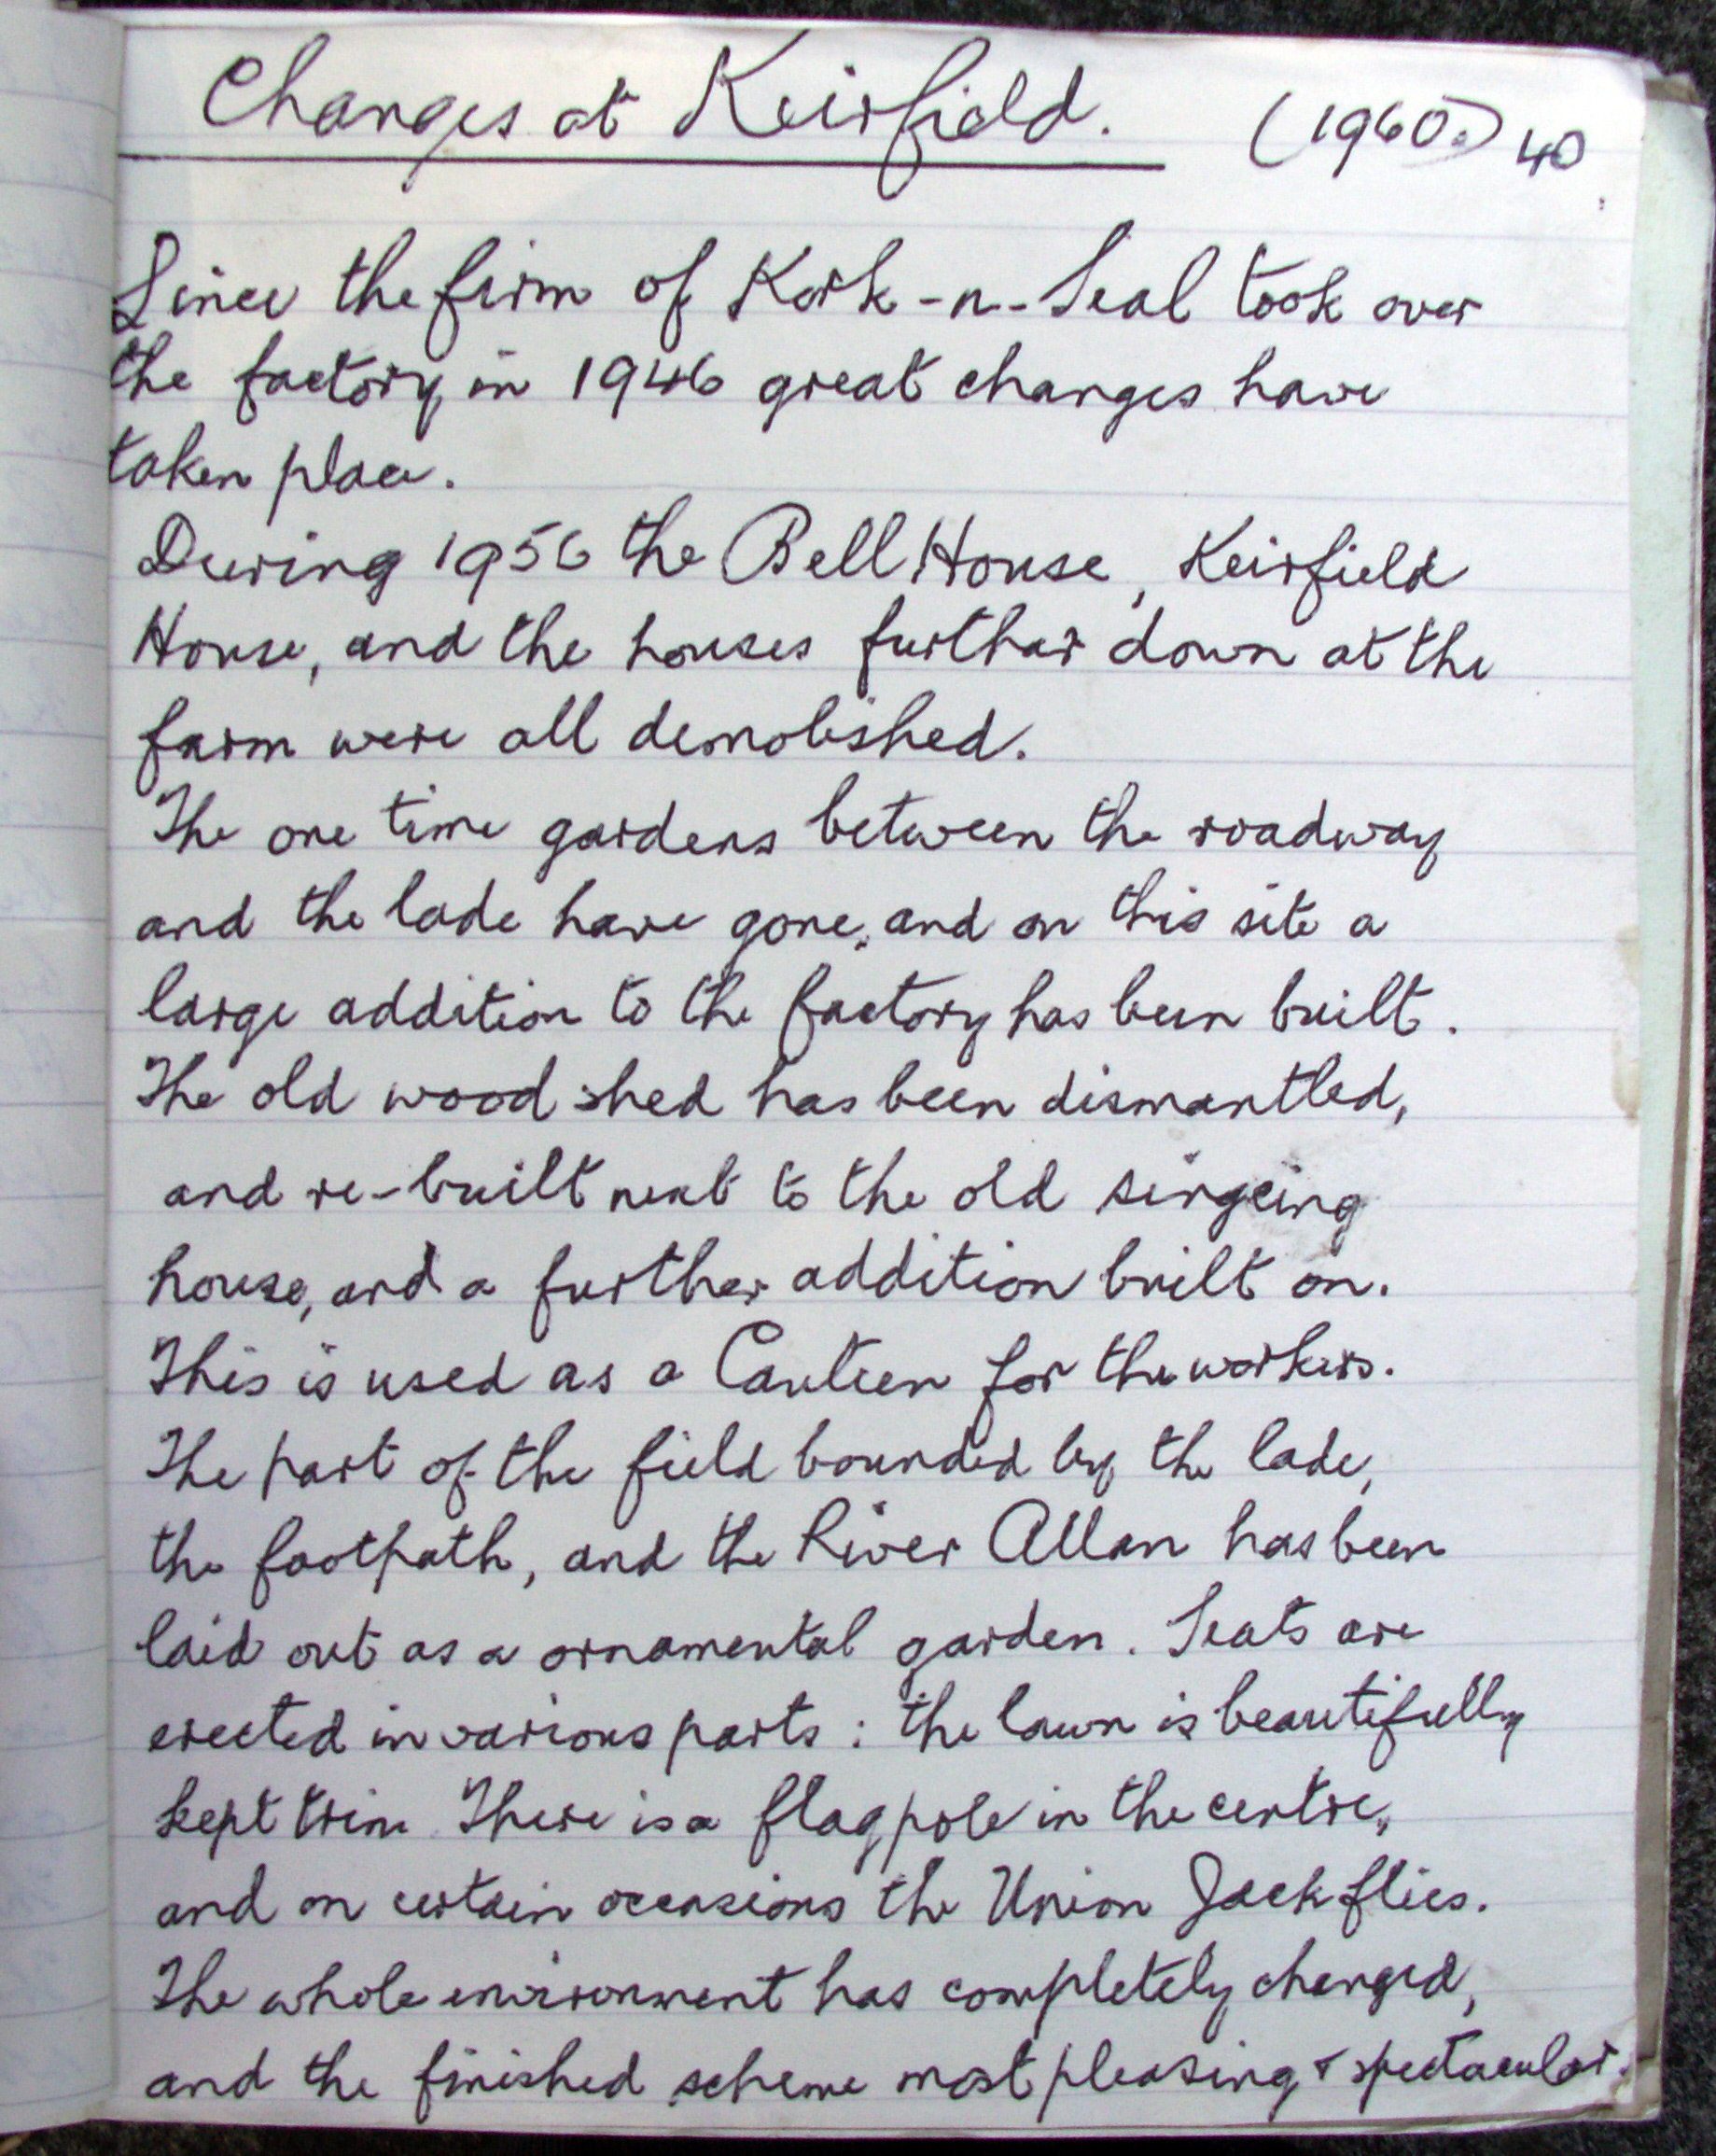 Changes at Keirfield. (1960.) 40
Since the firm of Kork-n-Seal took over
the factory in 1946 great changes have
taken place.
During 1956 the Bell House, Keirfield
House, and the houses further down at the
farm were all demolished.
The one time gardens between the roadway
and the lade have gone, and on this site a
large addition to the factory has been built.
The old wood shed has been dismantled,
and re-built next to the old singeing
house, and a further addition built on.
This is used as a Canteen for the workers.
The part of the field bounded by the lade,
the footpath, and the River Allan has been
laid out as a ornamental garden. Seats are
erected in various parts : the lawn is beautifully
kept trim There is a flagpole in the centre,
and on certain occasions the Union Jack flies.
The whole environment has completely changed,
and the finished scheme most pleasing & spectacular.